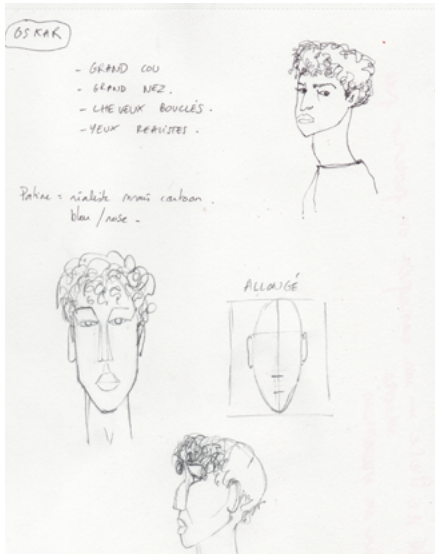 OSKAR
- GRAND COU
- GRAND NEZ.
- CHEVEUX BOUCLÉS.
- YEUX REALISTES.
Patine = réaliste mais cartoon.
bleu / rose -
ALLONGÉ